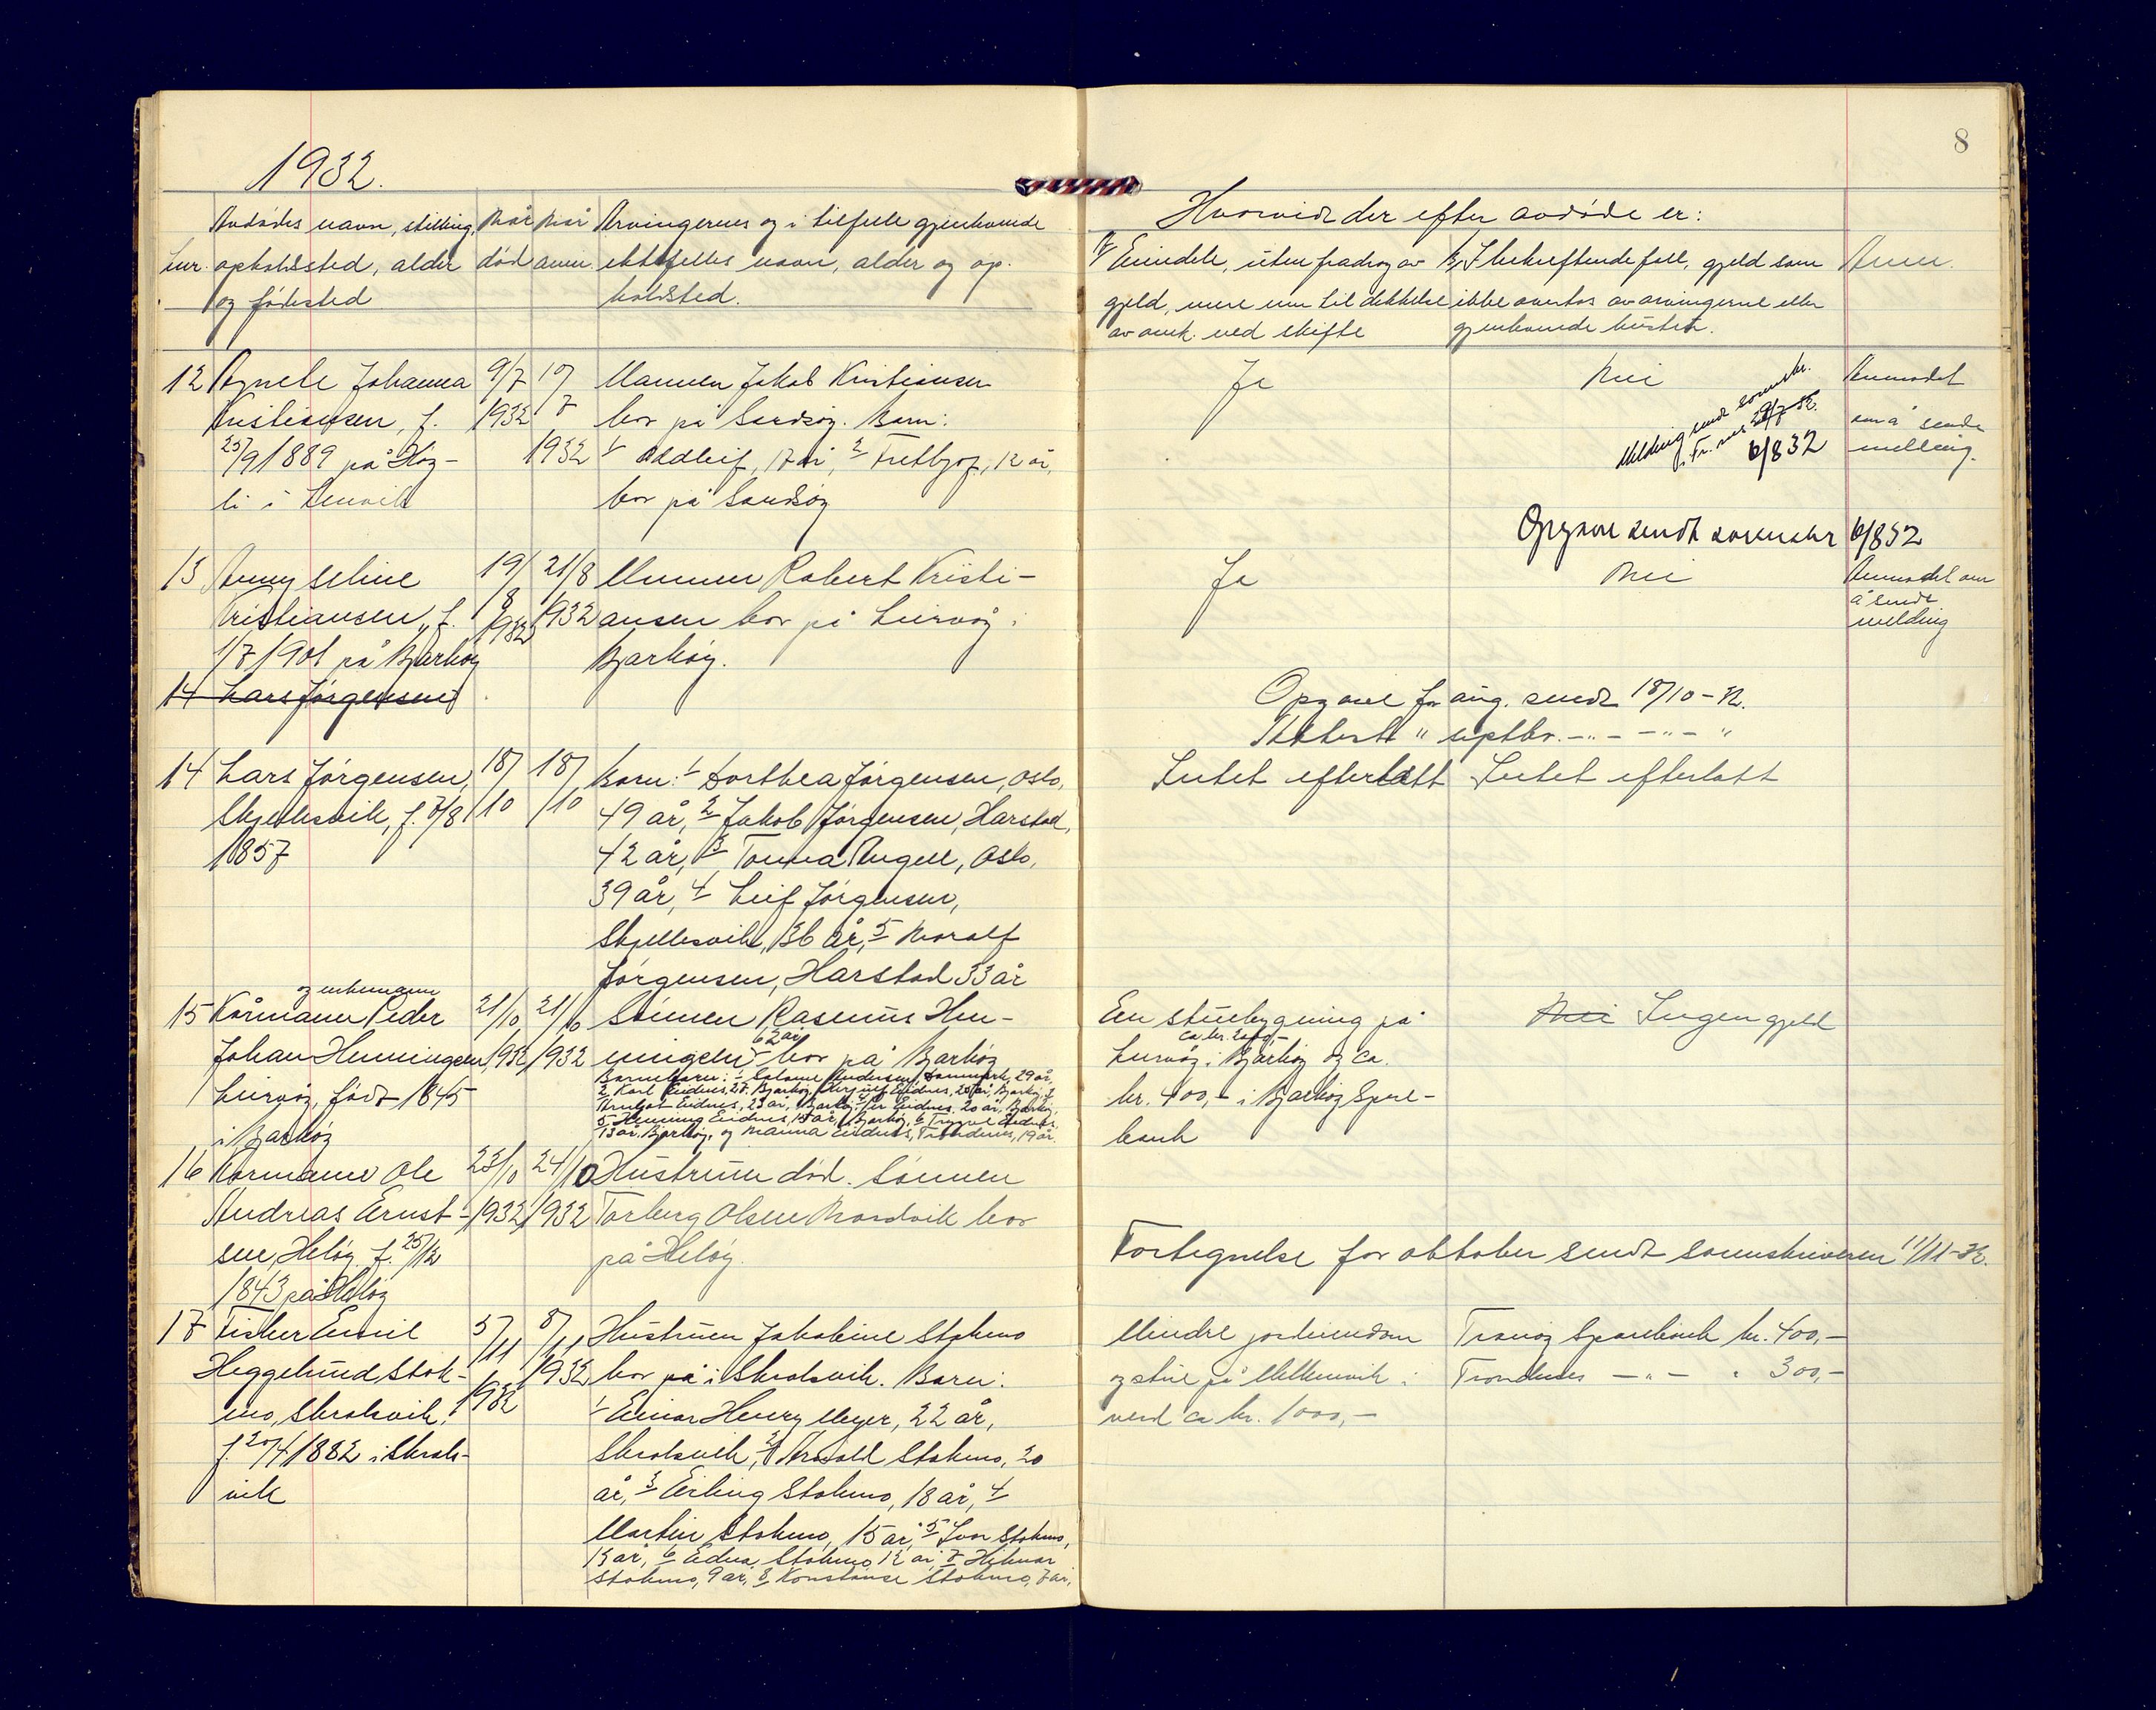 1932.
8
Avdødes navn, stilling,
opholdsted, alder
og fødested
Lnr.
Når
død
Når
anm.
Arvingernes og i tilfelle gjenlevende
ektefelles navn, alder og op-
holdsted.
Hvorvidt der efter avdøde er:
a/ Eiendele, uten fradrag av
gjeld, mere enn til dekkelse
av omk. ved skifte
b/ I bekreftende fall, gjeld som
ikke overtas av arvingerne eller
gjenlevende hustru.
Anm.
12 Agnete Johanna
Kristiansen, f.
25/9 1889 på Høg-
li i Lenvik
9/7
1932
10/
7
1932
Mannen Jakob Kristiansen
bor på Sandsøy. Barn:
1 Oddleif, 17 år, 2 Fritbjof, 12 år,
bor på Sandsøy
Ja
Nei
Melding sendt sorenskr.
i Fr. nes 29/7-32.
6/8 32
Anmodet
om å sende
melding.
Opgave sendt sorenskr 6/8 32
13 Anny Seline
Kristiansen, f.
1/7 1901 på Bjarkøy
19/
8
1932
21/8
1932
Mannen Robert Kristi-
ansen bor på Leirvåg i
Bjarkøy.
Ja
Nei
Anmodet om
å sende
melding
14 Lars Jørgensen
Opgave for aug. sendt 18/10-32.
Attest " septbr. -"- -"- "
14 Lars Jørgensen,
Skjellesvik, f. 7/8
1857
18/
10
18/
10
Barn: 1 Dorthea Jørgensen, Oslo,
49 år, 2 Jakob Jørgensen, Harstad,
42 år, 3 Tomma Angell, Oslo,
39 år, 4 Leif Jørgensen,
Skjellesvik, 36 år, 5 Noralf
Jørgensen, Harstad 33 år
Intet efterlatt
Intet efterlatt
og enkemann
15 Kårmann Peder
Johan Henningsen
Leirvåg, født 1845
i Bjarkøy
21/10
1932
21/10
1932
Sønnen Rasmus Hen-
62 år
ningsen bor på Bjarkøy
Barnebarn: 1 Salome Andersen, Danmark, 29 år,
2 Karl Eidnes, 27, Bjarkøy, Eidnes, 25 år, Bjarkøy, 3
Eidnes, 23 år, Bjarkøy, 4 Per Eidnes, 20 år, Bjarkøy,
5 Henning Eidnes, 15 år, Bjarkøy, 6 Trygve Eidnes,
13 år, Bjarkøy, og Marina Eidnes, Trondenes, 19 år.
En stuebygning på
ca. kr. 2000,-
Leirvåg i Bjarkøy og ca.
kr. 400,- i Bjarkøy Spare-
bank
Nei Ingen gjeld
16 Kårmann Ole
Andreas Ernst-
sen, Heløy. f. 25/12
1843 på Heløy
23/10
1932
24/10
1932
Hustruen død. Sønnen
Torberg Olsen Nordvik bor
på Heløy.
Fortegnelse for oktober sendt sorenskriveren 11/11-32.
17 Fisker Emil
Heggelund Stok-
mo, Skrolsvik,
f. 20/4 1882 i Skrols-
vik
5/
11
1932
8/
11
1932
Hustruen Jakobine Stokmo
bor på i Skrolsvik. Barn:
1 Einar Henry Meyer, 22 år,
Skrolsvik, 2 Arnold Stokmo, 20
år, 3 Erling Stokmo, 18 år, 4
Martin Stokmo, 15 år, 5 Ivar Stokmo,
13 år, 6 Edna Stokmo 12 år, 7 Hilmar
Stokmo, 9 år, 8 Konstanse Stokmo, 7 år,
Mindre jordeiendom
og stue på Mellemvik i
verd ca kr. 1000,-
Tranøy Sparebank kr. 400,-
Trondenes -"- " 300,-